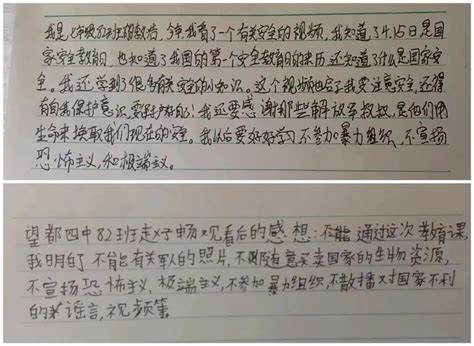 我是七年级刃班的数尚，今年我看了一个有关安全的视频，我知道了4.15日是国
家安全教育日，也知道了我国的第一个安全教育日的来历，还知道了什么是国家安
全。我还学到了很多有关安全的小知识。这个视频也告了我要注意安全，还得
有自我保护意识，要保护好自己！我还要感谢那些解放军叔叔，是他们用
生命来换取我们现在的安全。我以后要好好学习不参加暴力组织，不宣扬
恐怖主义，和极端主义。
望都四中82班赵子畅观看后的感想：不能通过这次教育课，
我明的了不能有关军人的照片，不贩有意买卖国家的生物资源，
不宣扬恐怖主义，极端主义，不参加暴力组织不散播对国家不利
的谣言，视频等